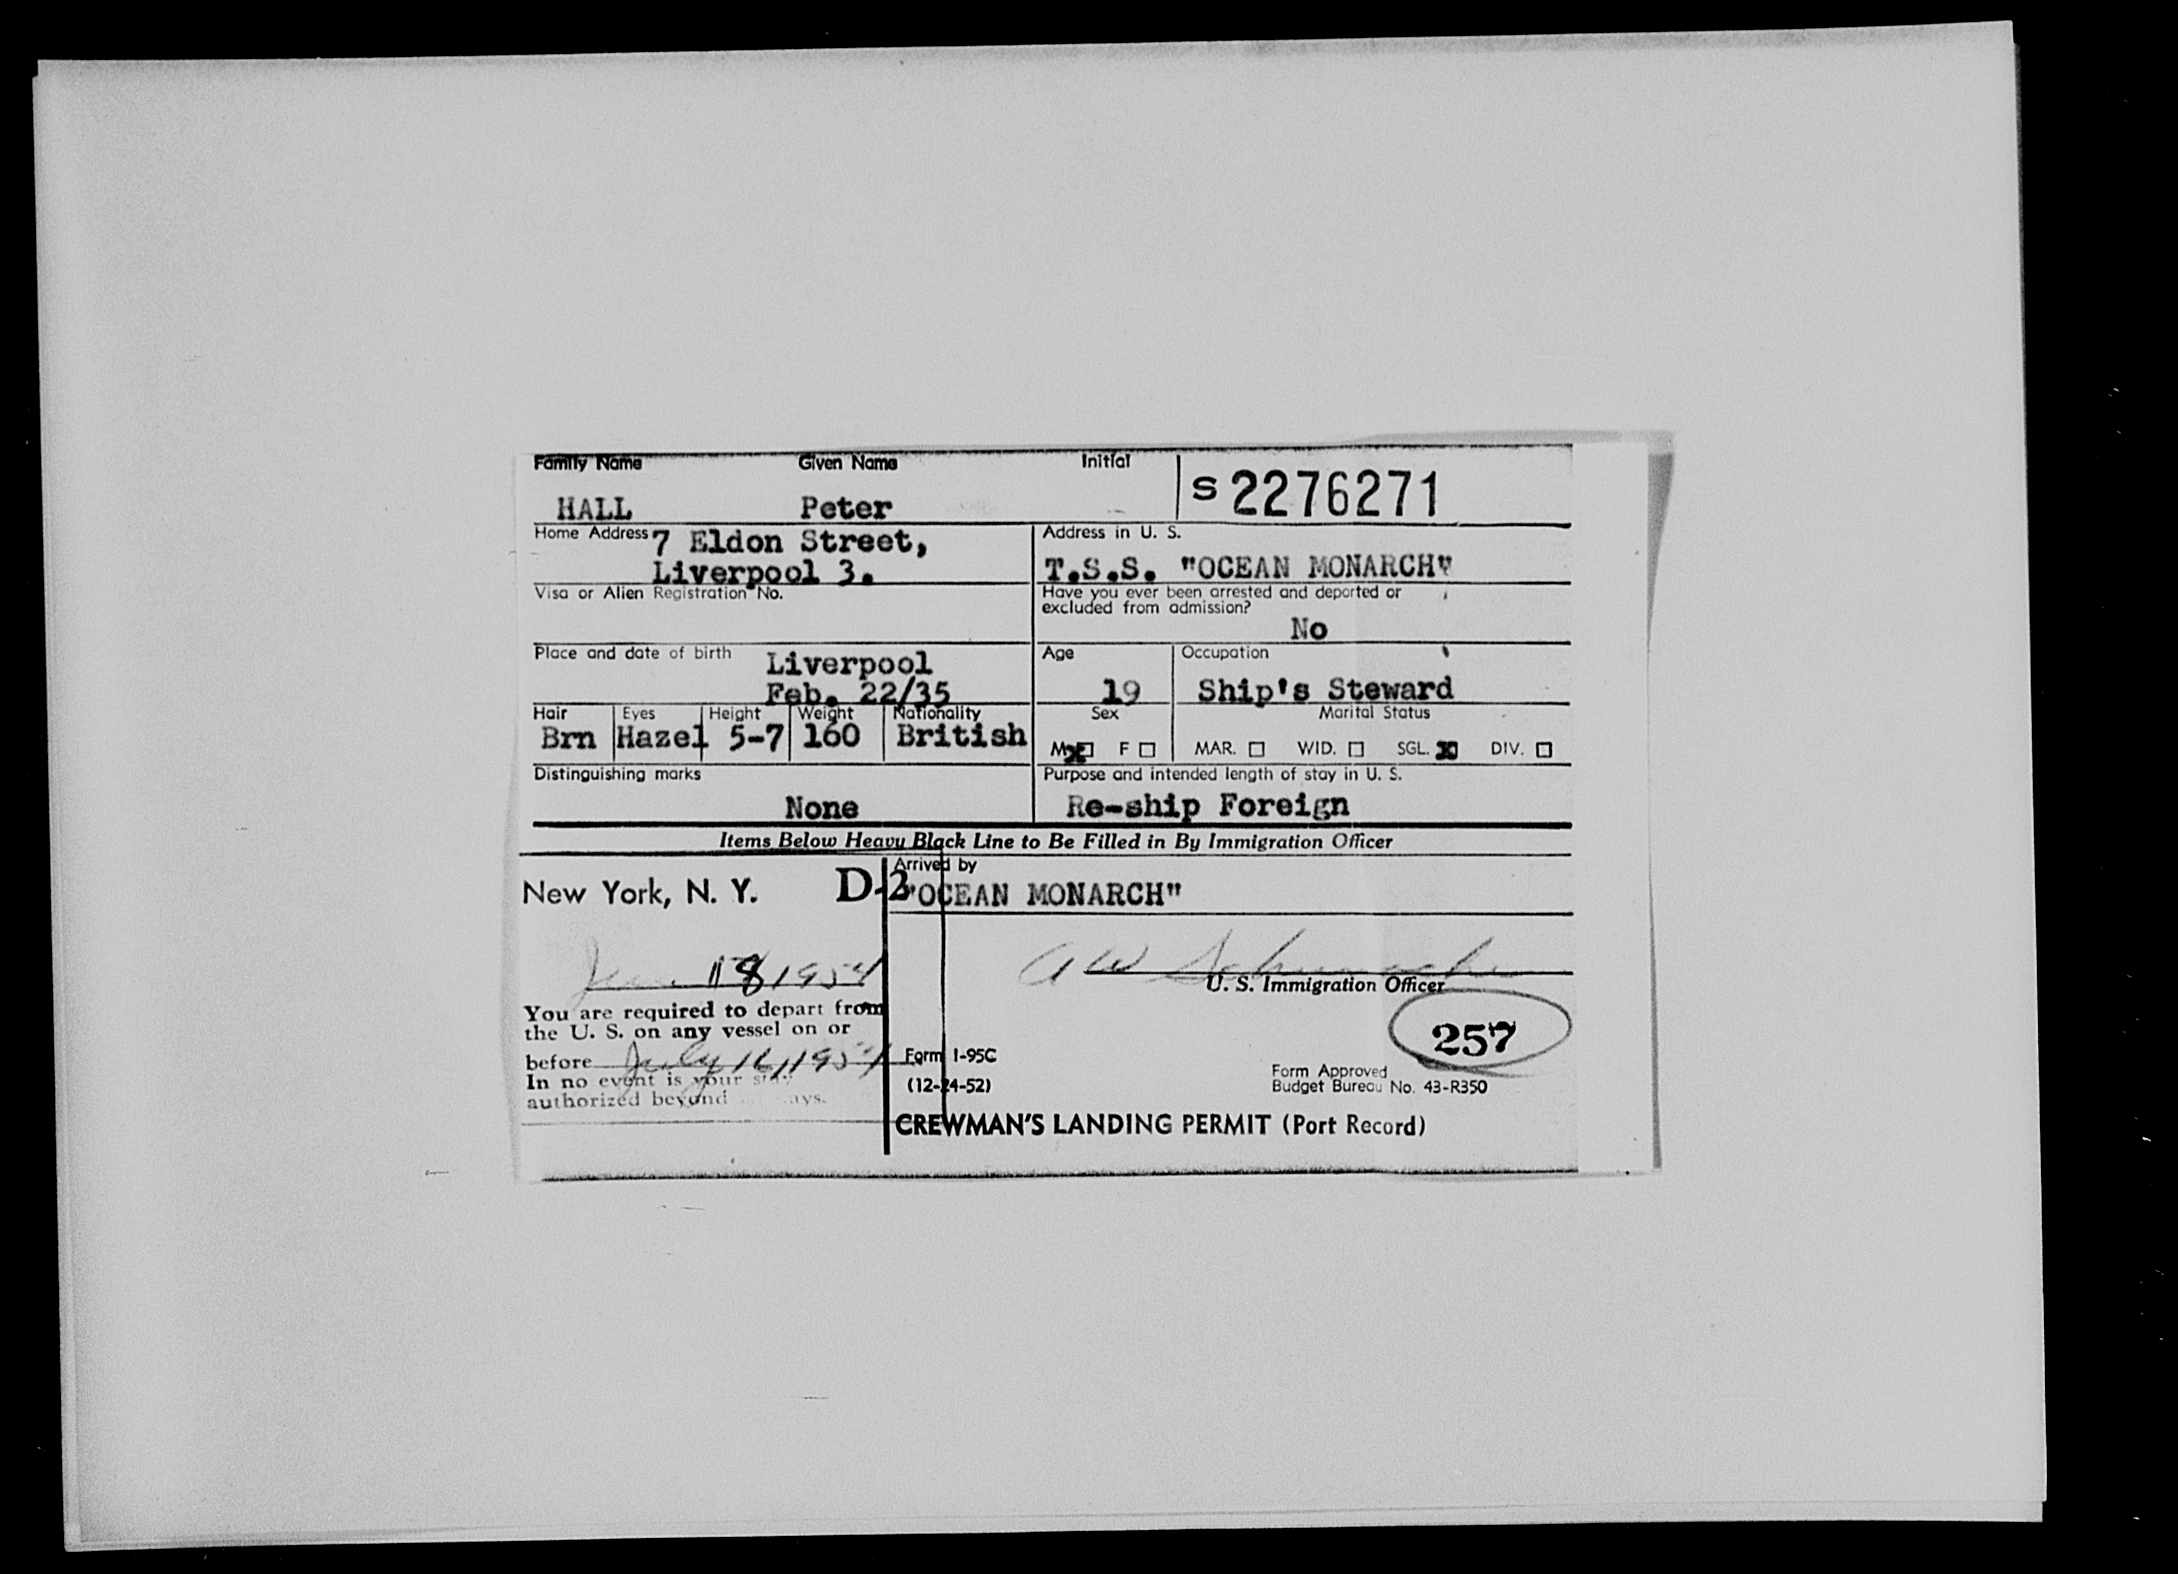 Family Name Given Name Initial
HALL Peter S2276271
Home Address 7 Eldon Street,
Liverpool 3.
Address in U. S.
T.S.S. "OCEAN MONARCH"
Visa or Alien Registration No.
Have you ever been arrested and deported or
excluded from admission?
No
Place and date of birth Liverpool
Feb. 22/35
Age
19
Occupation
Ship's Steward
Hair Eyes Height Weight Nationality
Brn Hazel 5-7 160 British
Sex
M X F
Marital Status
MAR. WID. SGL. X DIV.
Distinguishing marks
None
Purpose and intended length of stay in U. S.
Re-ship Foreign
Items Below Heavy Black Line to Be Filled in By Immigration Officer
New York, N. Y. D-2
Arrived by
"OCEAN MONARCH"
18 1954
U. S. Immigration Officer
You are required to depart from
the U. S. on any vessel on or
before July 16, 1954
In no event is your stay
authorized beyond days.
257
Form I-95C
(12-24-52)
Form Approved
Budget Bureau No. 43-R350
CREWMAN'S LANDING PERMIT (Port Record)